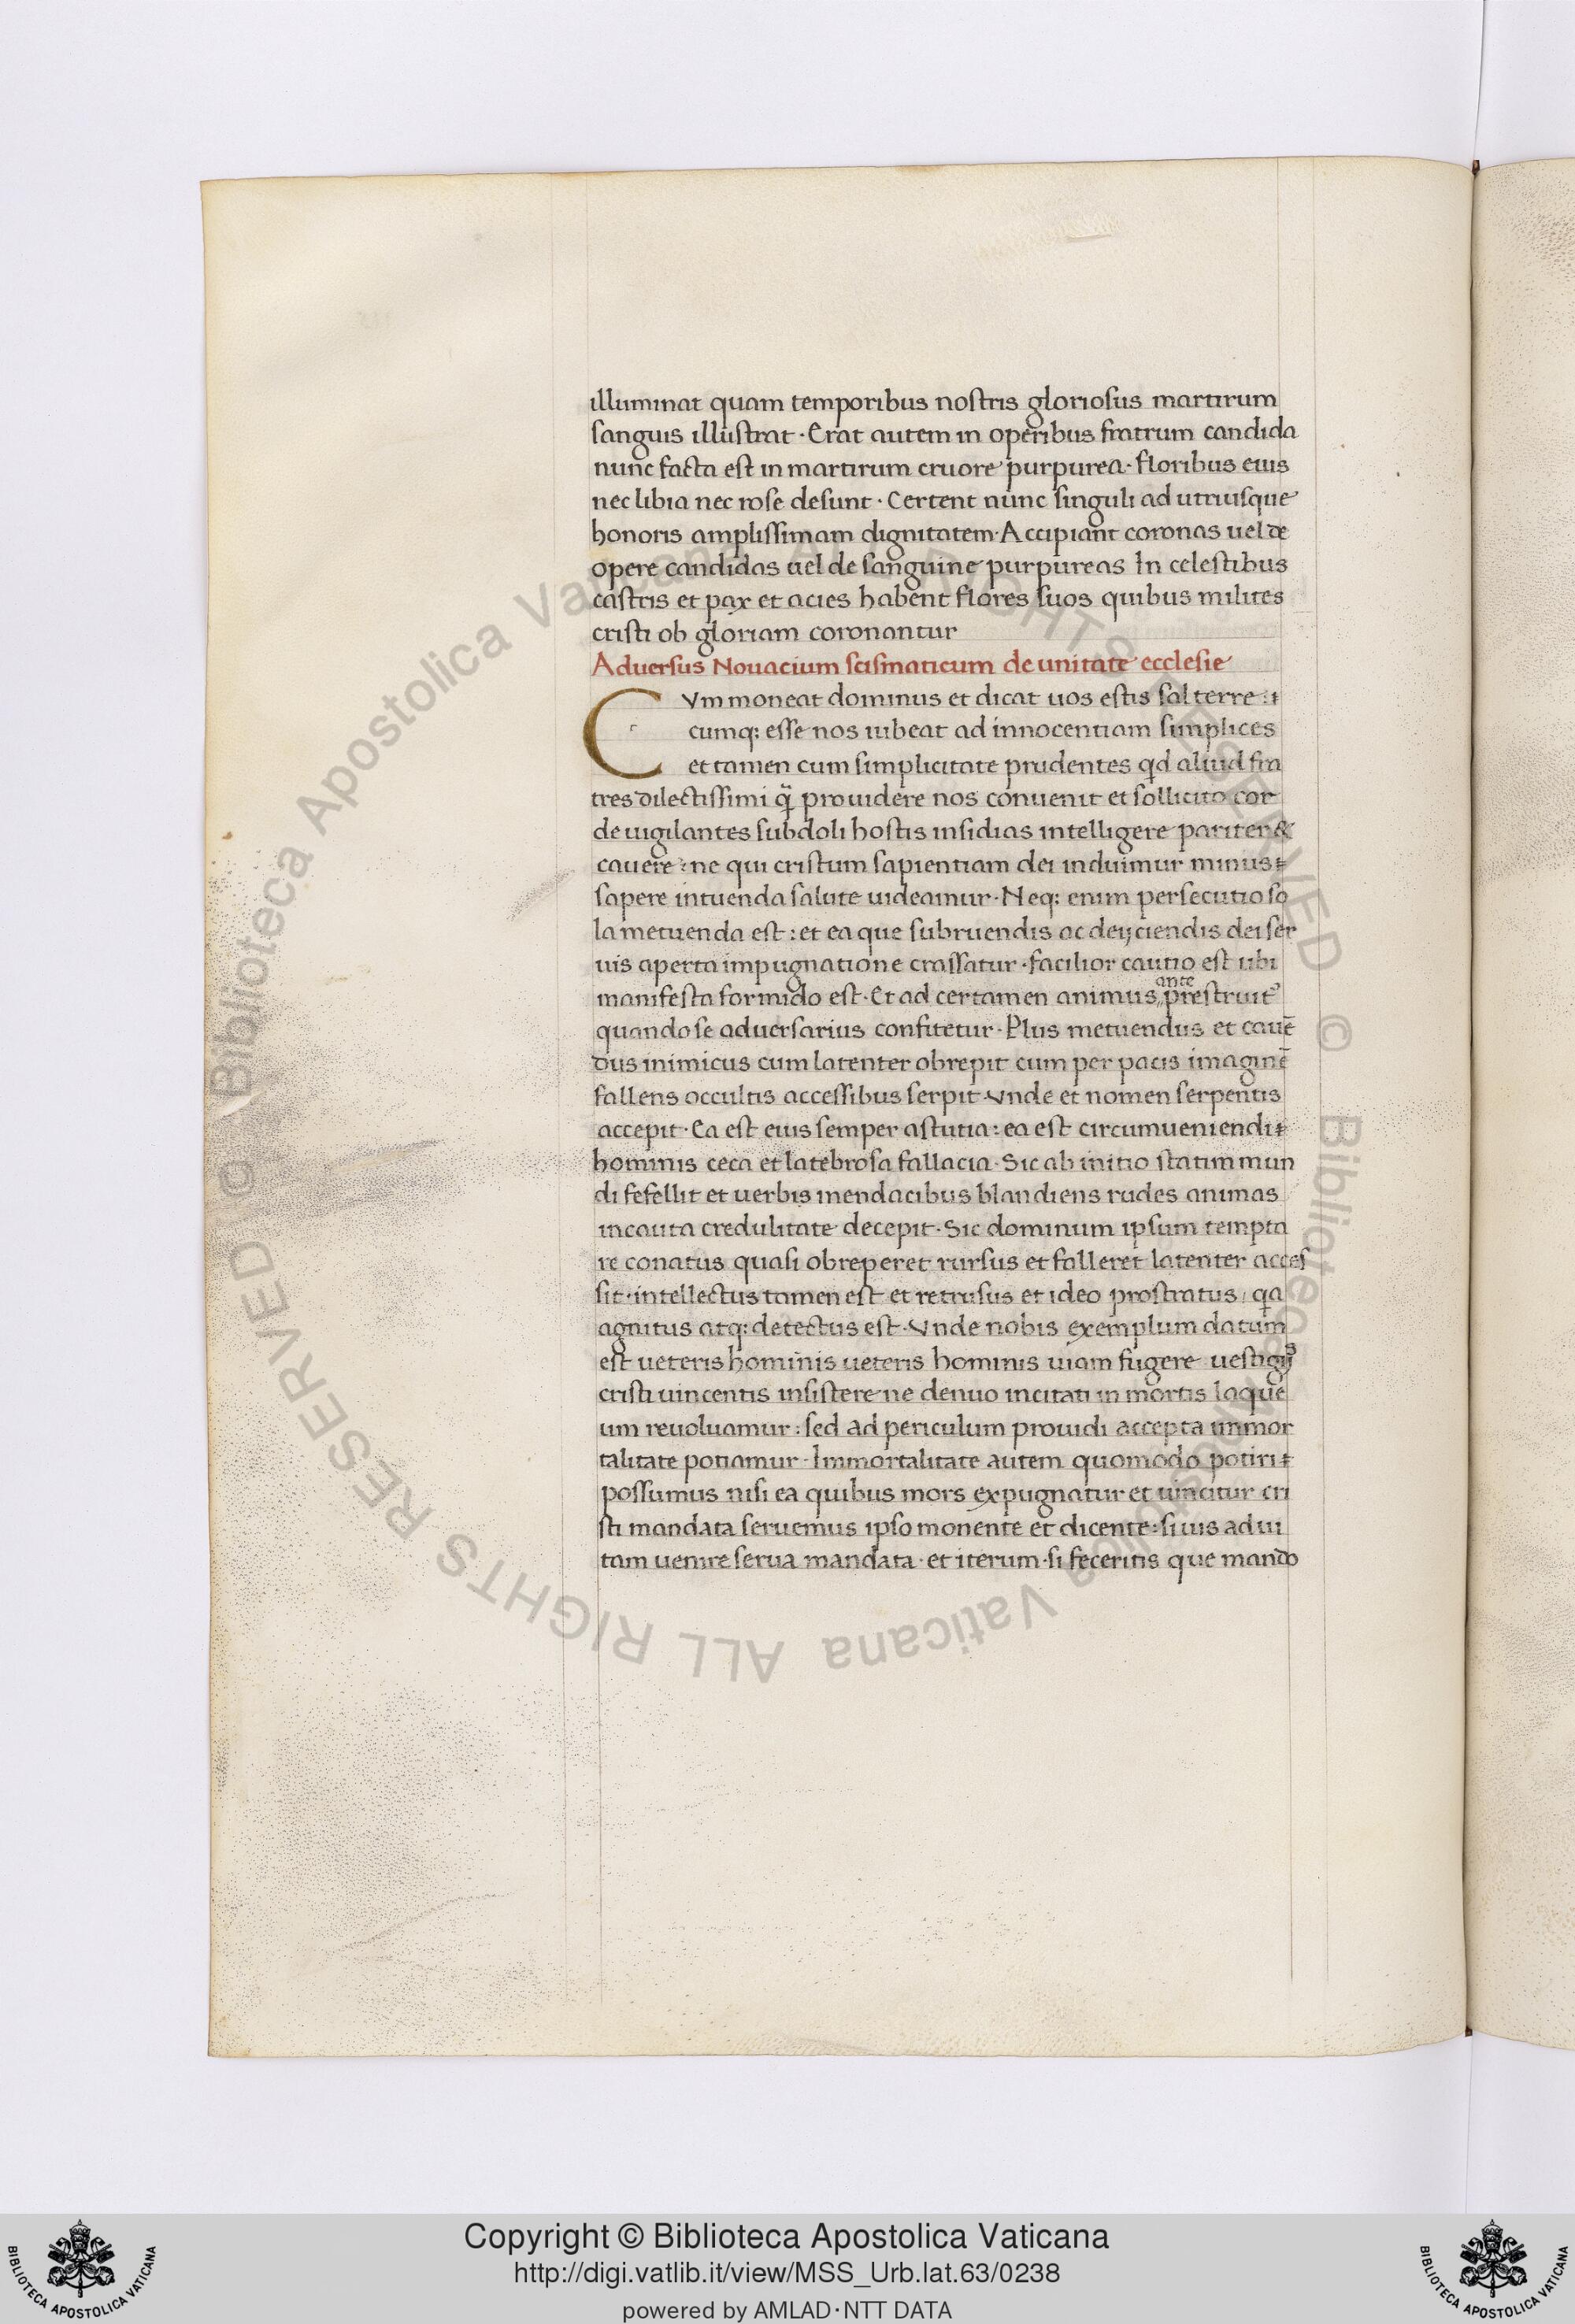 illuminat quam temporibus nostris gloriosus martirum
sanguis illustrat · Erat autem in operibus fratrum candida
nunc facta est in martirum cruore purpurea · floribus eius
nec libia nec rose desunt · Certent nunc singuli ad utriusque
honoris amplissimam dignitatem · Accipiant coronas uel de
opere candidas uel de sanguine purpureas In celestibus
castris et pax et acies habent flores suos quibus milites
cristi ob gloriam coronantur
Aduersus Nouacium scismaticum de unitate ecclesie
CVm moneat dominus et dicat uos estis sal terre :
cumq: esse nos iubeat ad innocentiam simplices
et tamen cum simplicitate prudentes qd aliud fra
tres dilectissimi q̃ prouidere nos conuenit et sollicito cor
de uigilantes subdoli hostis insidias intelligere pariter &
cauere : ne qui cristum sapientiam dei induimur minus
sapere in tuenda salute uideamur · Neq: enim persecutio so
la metuenda est : et ea que subruendis ac deijciendis dei ser
uis aperta impugnatione crassatur · facilior cautio est ubi
manifesta formido est · Et ad certamen animus ante prestruit᾽
quando se aduersarius confitetur · Plus metuendus et cauē
dus inimicus cum latenter obrepit cum per pacis imaginē
fallens occultis accessibus serpit · Vnde et nomen serpentis
accepit · Ea est eius semper astutia : ea est circumueniendi
hominis ceca et latebrosa fallacia · Sic ab initio statim mun
di fefellit et uerbis mendacibus blandiens rudes animas
incauta credulitate decepit · Sic dominum ipsum tempta
re conatus quasi obreperet rursus et falleret latenter acces
sit · intellectus tamen est et retrusus et ideo prostratus , qa
agnitus atq: detectus est · Vnde nobis exemplum datum
est ueteris hominis ueteris hominis uiam fugere uestigijs
cristi uincentis insistere ne denuo incitati in mortis laque
um reuoluamur : sed ad periculum prouidi accepta immor
talitate potiamur · Immortalitate autem quomodo potiri
possumus nisi ea quibus mors expugnatur et uincitur cri
sti mandata seruemus ipso monente et dicente : si uis ad ui
tam uenire serua mandata · et iterum · si feceritis que mando
© Biblioteca Apostolica Vaticana ALL RIGHTS RESERVED © Biblioteca Apostolica Vaticana ALL RIGHTS RESERVED
Copyright © Biblioteca Apostolica Vaticana
http://digi.vatlib.it/view/MSS_Urb.lat.63/0238
powered by AMLAD·NTT DATA
BIBLIOTECA APOSTOLICA VATICANA
BIBLIOTECA APOSTOLICA VATICANA